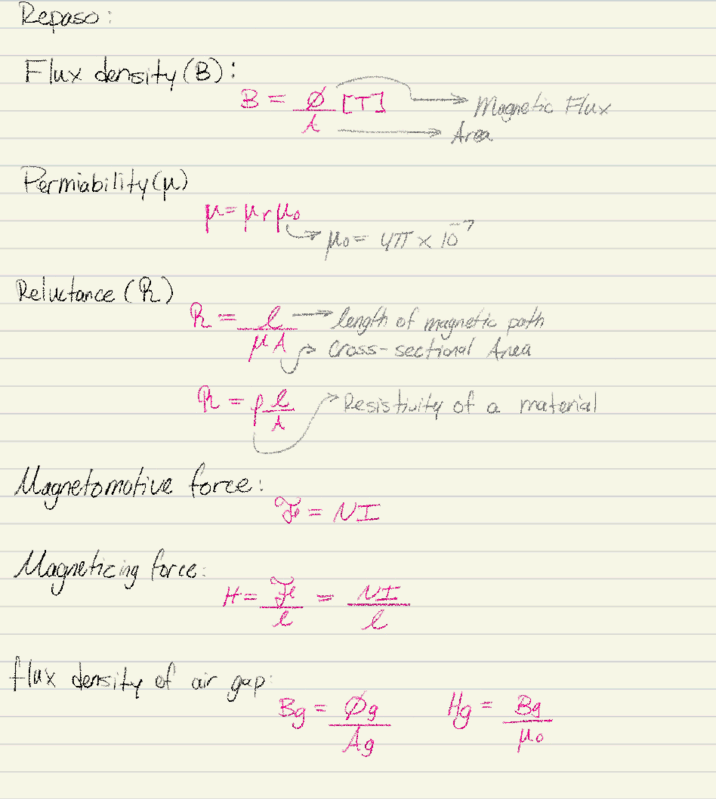 Repaso:
Flux density (B):
B = Ø/A [T] → Magnetic Flux
→ Area
Permiability (μ)
μ = μr μo
→ μo = 4π × 10⁻⁷
Reluctance (ℛ)
ℛ = l/μA → length of magnetic path
→ Cross-sectional Area
ℛ = ρ l/A → Resistivity of a material
Magnetomotive force:
ℱ = NI
Magneticing force:
H = ℱ/l = NI/l
flux density of air gap:
Bg = Øg/Ag Hg = Bg/μo